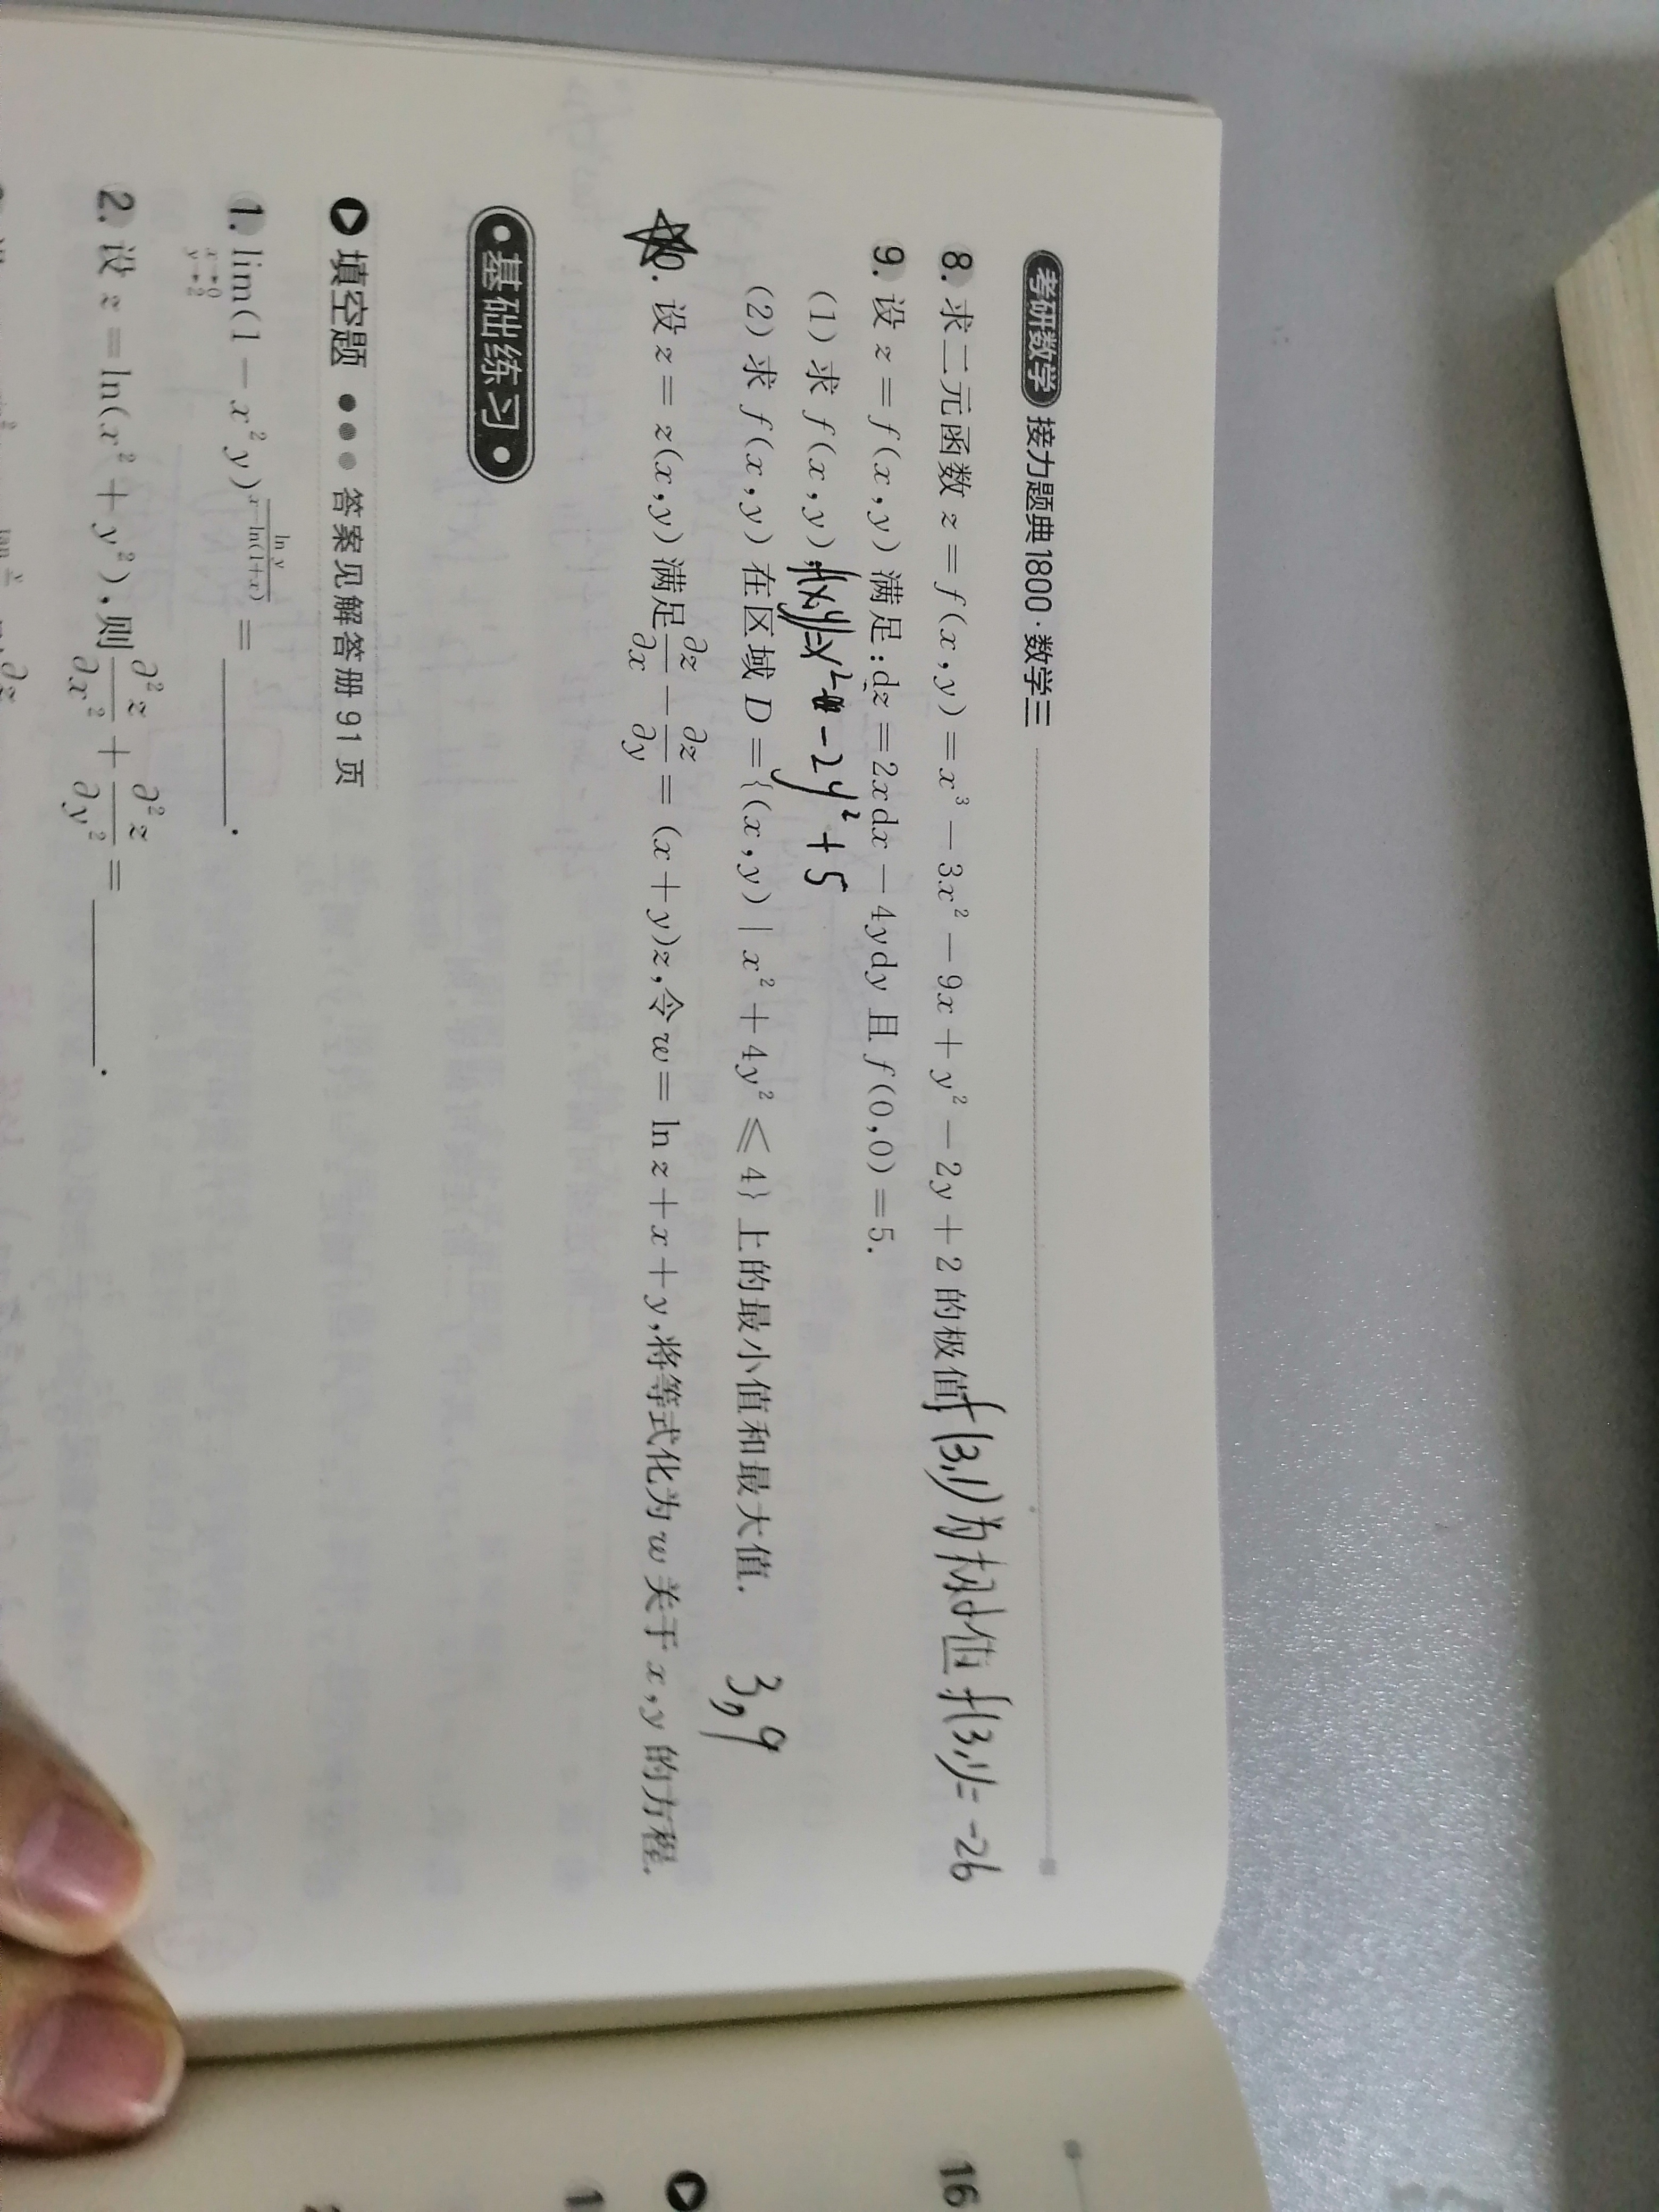 考研数学 接力题典1800·数学三
8. 求二元函数 z = f(x,y) = x³ − 3x² − 9x + y² − 2y + 2 的极值 f(3,1)为极小值 f(3,1)= -26
9. 设 z = f(x,y) 满足:dz = 2xdx − 4ydy 且 f(0,0) = 5.
(1) 求 f(x,y); f(x,y)=x² - 2y² + 5
(2) 求 f(x,y) 在区域 D = {(x,y) | x² + 4y² ≤ 4} 上的最小值和最大值. 3,9
0. 设 z = z(x,y) 满足 ∂z/∂x − ∂z/∂y = (x + y)z,令 w = ln z + x + y,将等式化为 w 关于 x,y 的方程.
基础练习
填空题 ●●● 答案见解答册 91 页
1. lim(x→0, y→2) (1 − x²y)^(ln y/(x−ln(1+x))) = ______.
2. 设 z = ln(x² + y²),则 ∂²z/∂x² + ∂²z/∂y² = ______.
16